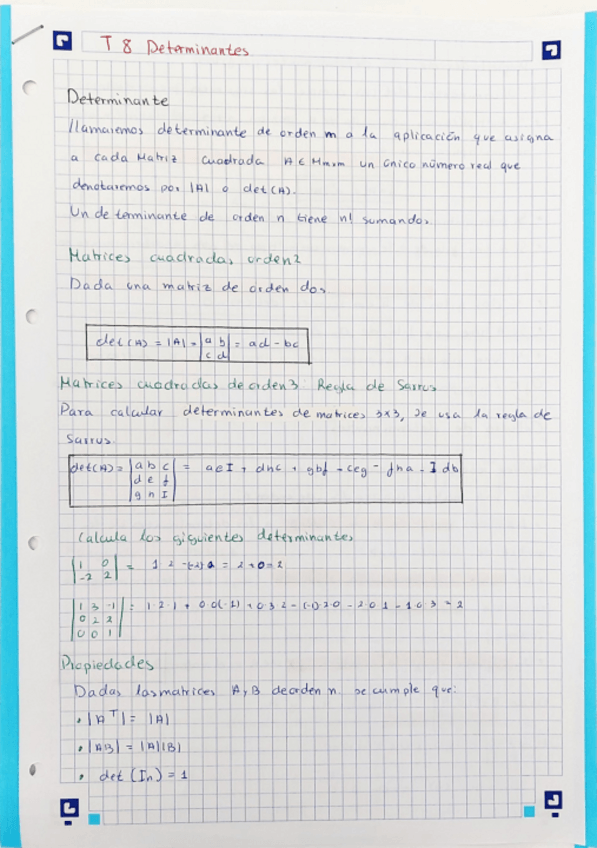 T 8 Determinantes
Determinante
llamaremos determinante de orden m a la aplicación que asigna
a cada Matriz Cuadrada A ∈ Mmxm un único número real que
denotaremos por |A| o det(A).
Un determinante de orden n tiene n! sumandos
Matrices cuadradas orden 2
Dada una matriz de orden dos
det(A) = |A| = |a b| = ad - bc
|c d|
Matrices cuadradas de orden 3 Regla de Sarrus
Para calcular determinantes de matrices 3x3, se usa la regla de
Sarrus.
det(A) = |a b c| = aeI + dhc + gbf - ceg - fha - Idb
|d e f|
|g h I|
Calcula los siguientes determinantes
|1 0| = 1 2 -(-2) 0 = 2 + 0 = 2
|-2 2|
|1 3 -1| = 1 2 1 + 0 0 (-1) + 0 3 2 - (-1) 2 0 - 2 0 1 - 1 0 3 = 2
|0 2 2|
|0 0 1|
Propiedades
Dadas las matrices A y B de orden n. se cumple que:
• |A^T| = |A|
• |AB| = |A||B|
• det (In) = 1